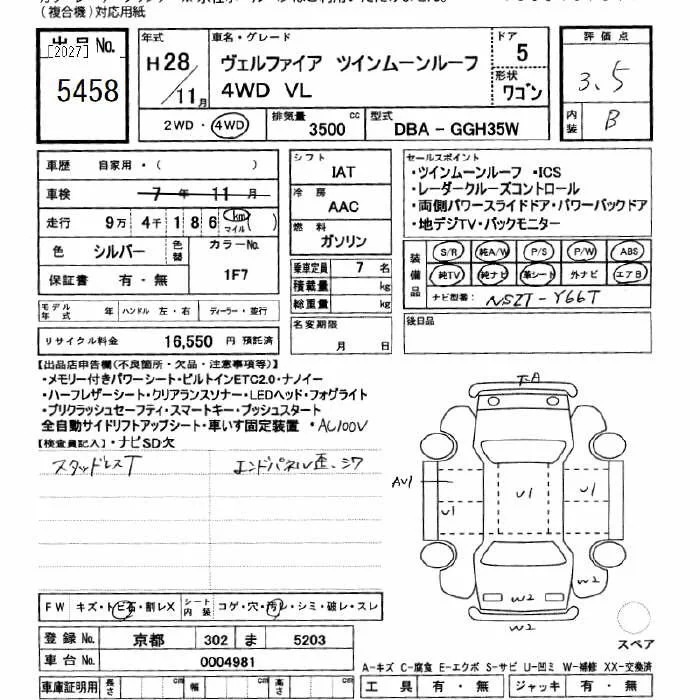 (複合機)対応用紙
出品No.
[2027]
5458
年式
H28/11月
車名・グレード
ヴェルファイア ツインムーンルーフ
4WD VL
ドア
5
形状
ワゴン
評価点
3.5
内装
B
2WD・4WD
排気量
3500 cc
型式
DBA - GGH35W
車歴 自家用・( )
車検 7年 11月
走行 9万 4千 1 8 6 km マイル ( )
色 シルバー 色替 カラーNo. 1F7
保証書 有・無
モデル年式 年 ハンドル 左・右 ディーラー・並行
リサイクル料金 16,550 円 預託済
シフト
IAT
冷房
AAC
燃料
ガソリン
乗車定員 7 名
積載量 kg
総重量 kg
名変期限
月 日
セールスポイント
・ツインムーンルーフ ・ICS
・レーダークルーズコントロール
・両側パワースライドドア・パワーバックドア
・地デジTV・バックモニター
装備品
S/R 純A/W P/S P/W ABS
純TV 純ナビ 革シート 外ナビ エアB
ナビ型番: NSZT-Y66T
後日品
【出品店申告欄(不良箇所・欠品・注意事項等)】
・メモリー付きパワーシート・ビルトインETC2.0・ナノイー
・ハーフレザーシート・クリアランスソナー・LEDヘッド・フォグライト
・プリクラッシュセーフティ・スマートキー・プッシュスタート
全自動サイドリフトアップシート・車いす固定装置 ・AC100V
【検査員記入】・ナビSD欠
スタッドレスT エンドパネル歪、シワ
AU1
U1
U1
U1
W2
W2
W2
スペア
FW キズ・トビ石・割レX シート内装 コゲ・穴・汚レ・シミ・破レ・スレ
登録No. 京都 302 ま 5203
車台No. 0004981
車庫証明用 長さ cm 幅 cm 高さ cm
A-キズ C-腐食 E-エクボ S-サビ U-凹ミ W-補修 XX-交換済
工具 有・無 ジャッキ 有・無